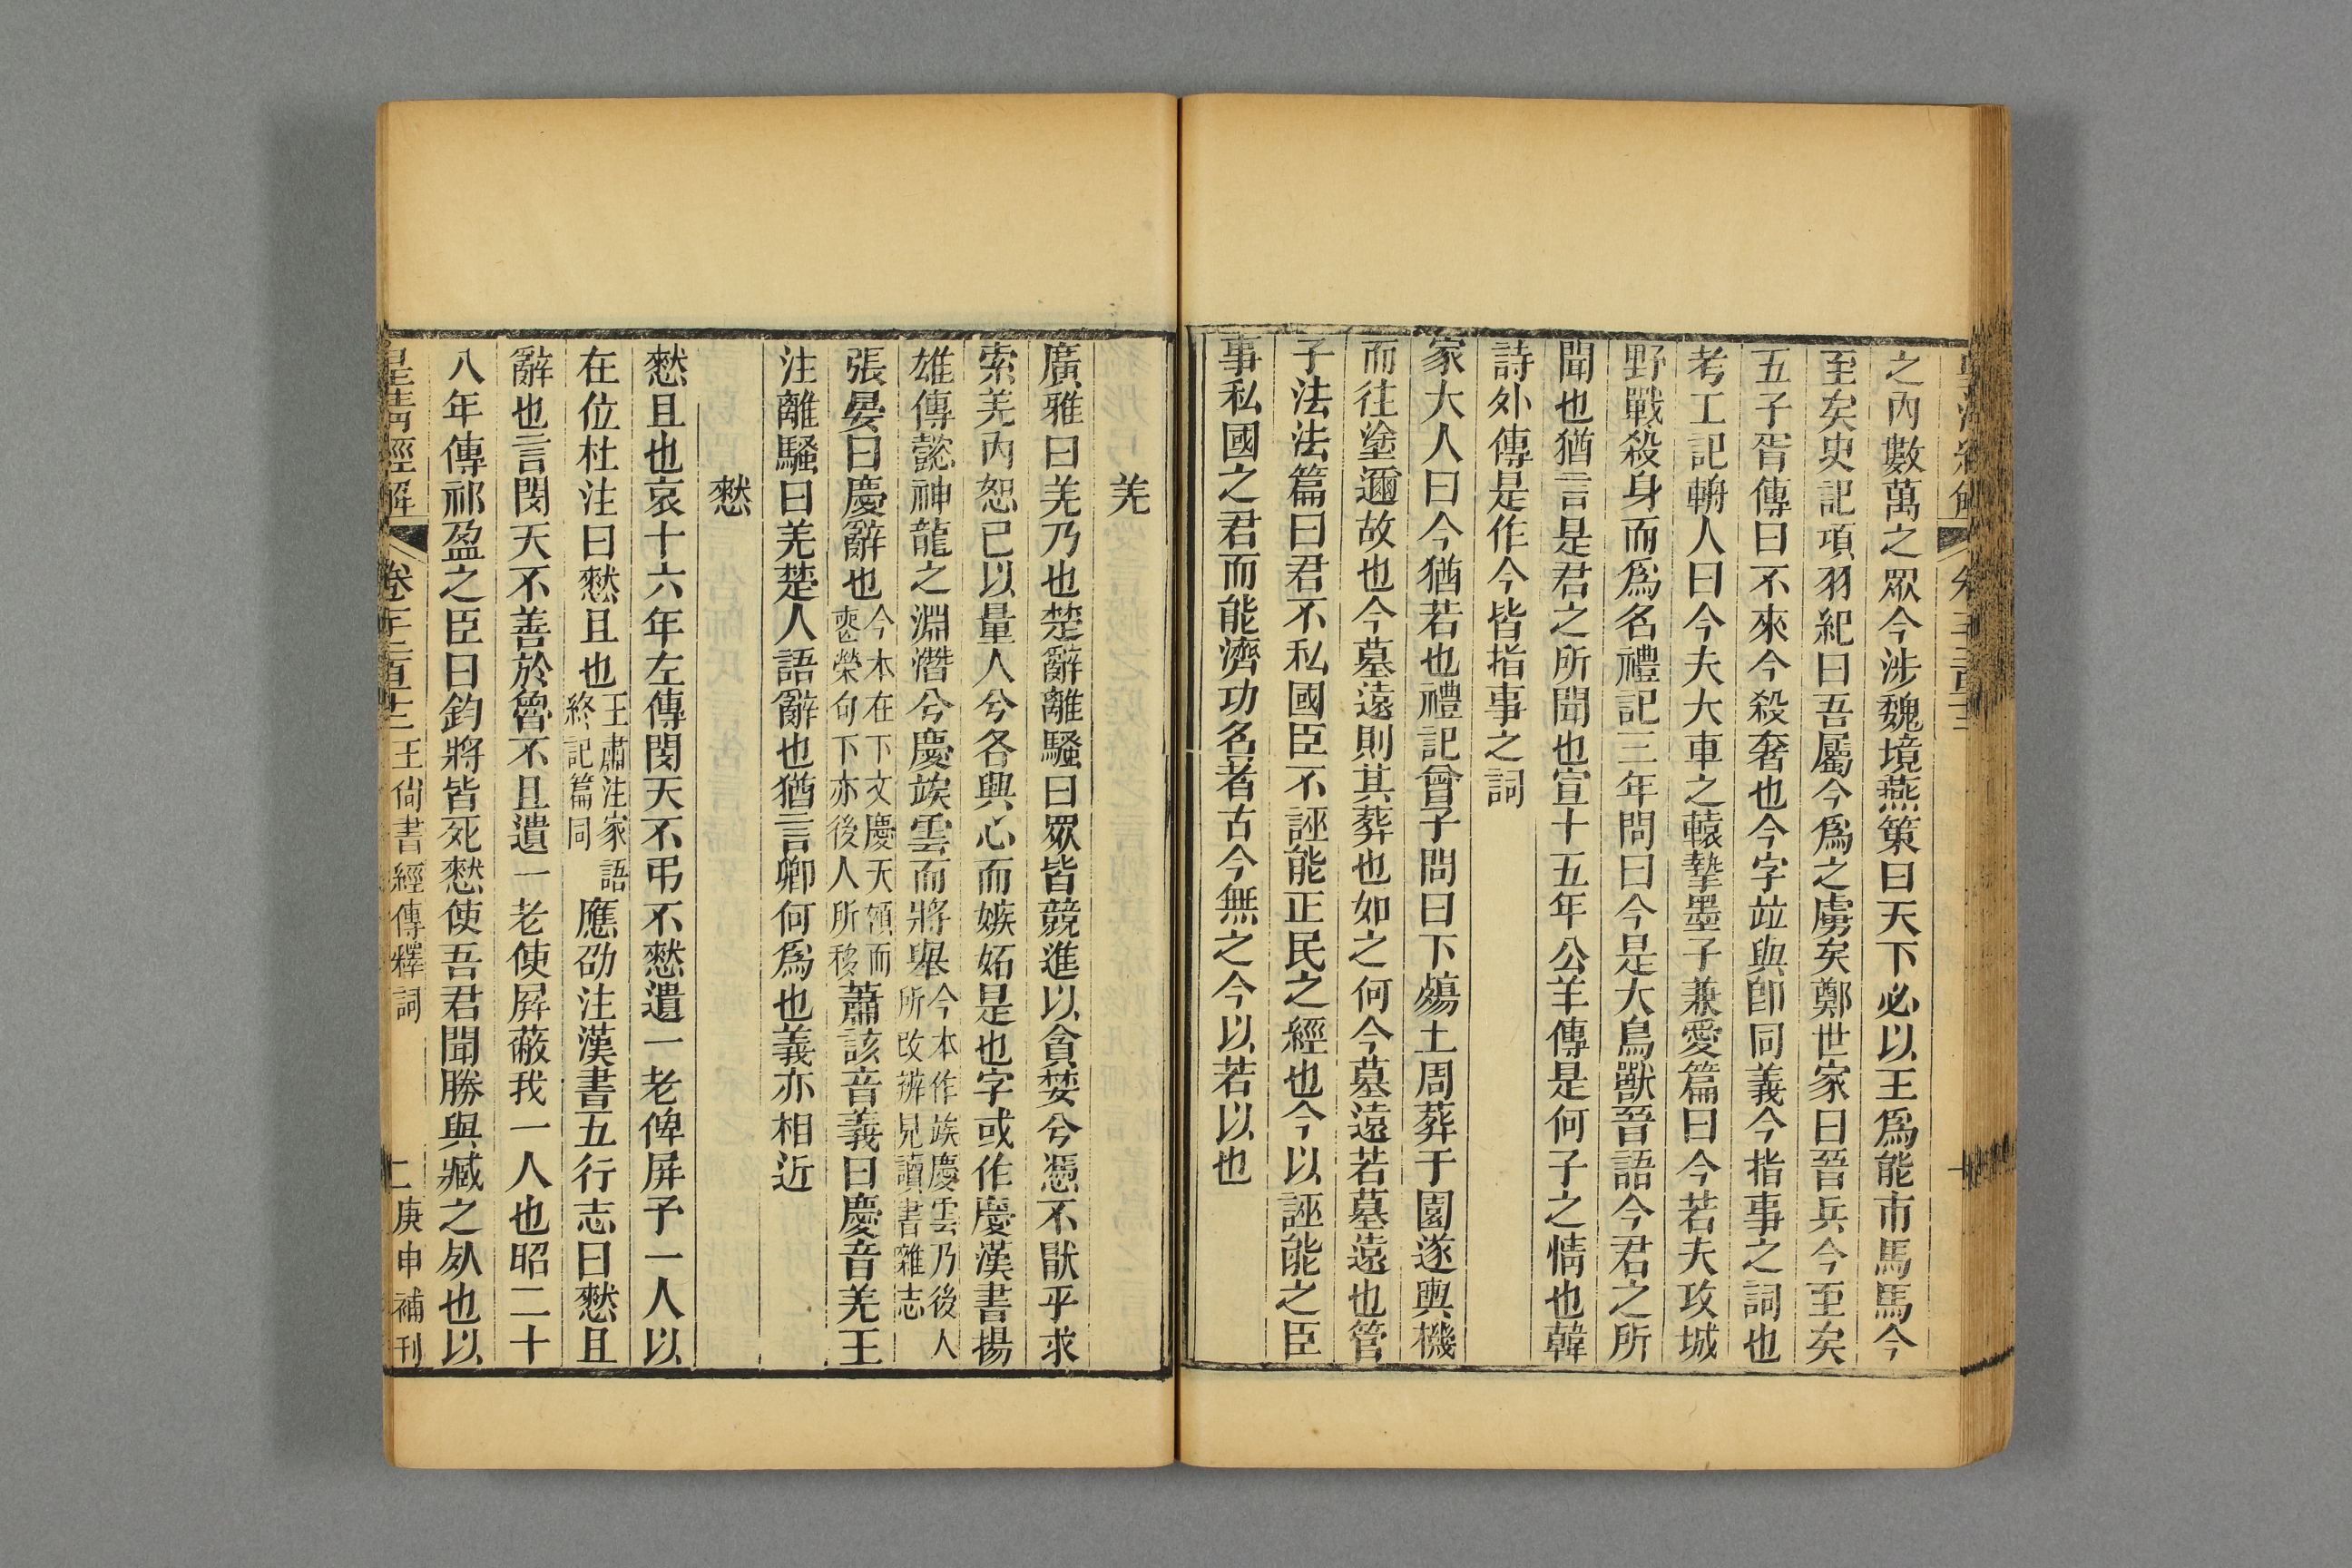 之內數萬之眾今涉魏境燕策曰天下必以王爲能市馬馬今
至矣史記項羽紀曰吾屬今爲之虜矣鄭世家曰晉兵今至矣
五子胥傳曰不來今殺奢也今字竝與卽同義今指事之詞也
考工記輈人曰今夫大車之轅摯墨子兼愛篇曰今若夫攻城
野戰殺身而爲名禮記三年問曰今是大鳥獸晉語今君之所
聞也猶言是君之所聞也宣十五年公羊傳是何子之情也韓
詩外傳是作今皆指事之詞
家大人曰今猶若也禮記曾子問曰下殤土周葬于園遂輿機
而往塗邇故也今墓遠則其葬也如之何今墓遠若墓遠也管
子法法篇曰君不私國臣不誣能正民之經也今以誣能之臣
事私國之君而能濟功名者古今無之今以若以也
羌
廣雅曰羌乃也楚辭離騷曰眾皆競進以貪婪兮憑不猒乎求
索羌內恕已以量人兮各興心而嫉妬是也字或作慶漢書揚
雄傳懿神龍之淵潛兮慶竢雲而將舉今本作竢慶雲乃後人
所改辨見讀書雜志
張晏曰慶辭也今本在下文慶夭領而
喪榮句下亦後人所移蕭該音義曰慶音羌王
注離騷曰羌楚人語辭也猶言卿何爲也義亦相近
憖
憖且也哀十六年左傳閔天不弔不憖遺一老俾屏予一人以
在位杜注曰憖且也王肅注家語
終記篇同應劭注漢書五行志曰憖且
辭也言閔天不善於魯不且遺一老使屛蔽我一人也昭二十
八年傳祁盈之臣曰鈞將皆死憖使吾君聞勝與臧之死也以
皇清經解 卷千二百十二 王尙書經傳釋詞 二 庚申補刊